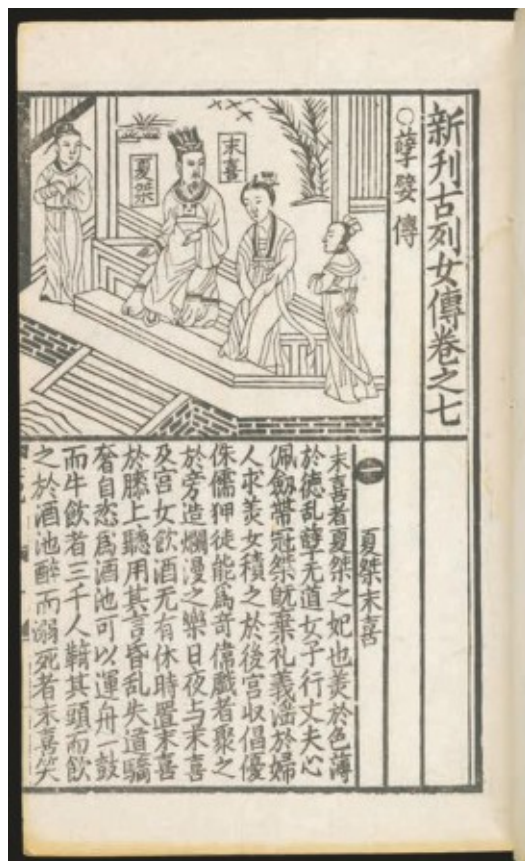 新刊古列女傳卷之七
○孽嬖傳
末喜
夏桀
一
夏桀末喜
末喜者夏桀之妃也羙於色薄
於德乱孽无道女子行丈夫心
佩劔帶冠桀既棄礼義滛於婦
人求羙女積之於後宫収倡優
侏儒狎徒能爲竒偉戲者聚之
於旁造爛漫之樂日夜与末喜
及宫女飲酒无有休時置末喜
於膝上聽用其言昏乱失道驕
奢自恣爲酒池可以運舟一鼓
而牛飲者三千人其頭而飲
之於酒池醉而溺死者末喜笑